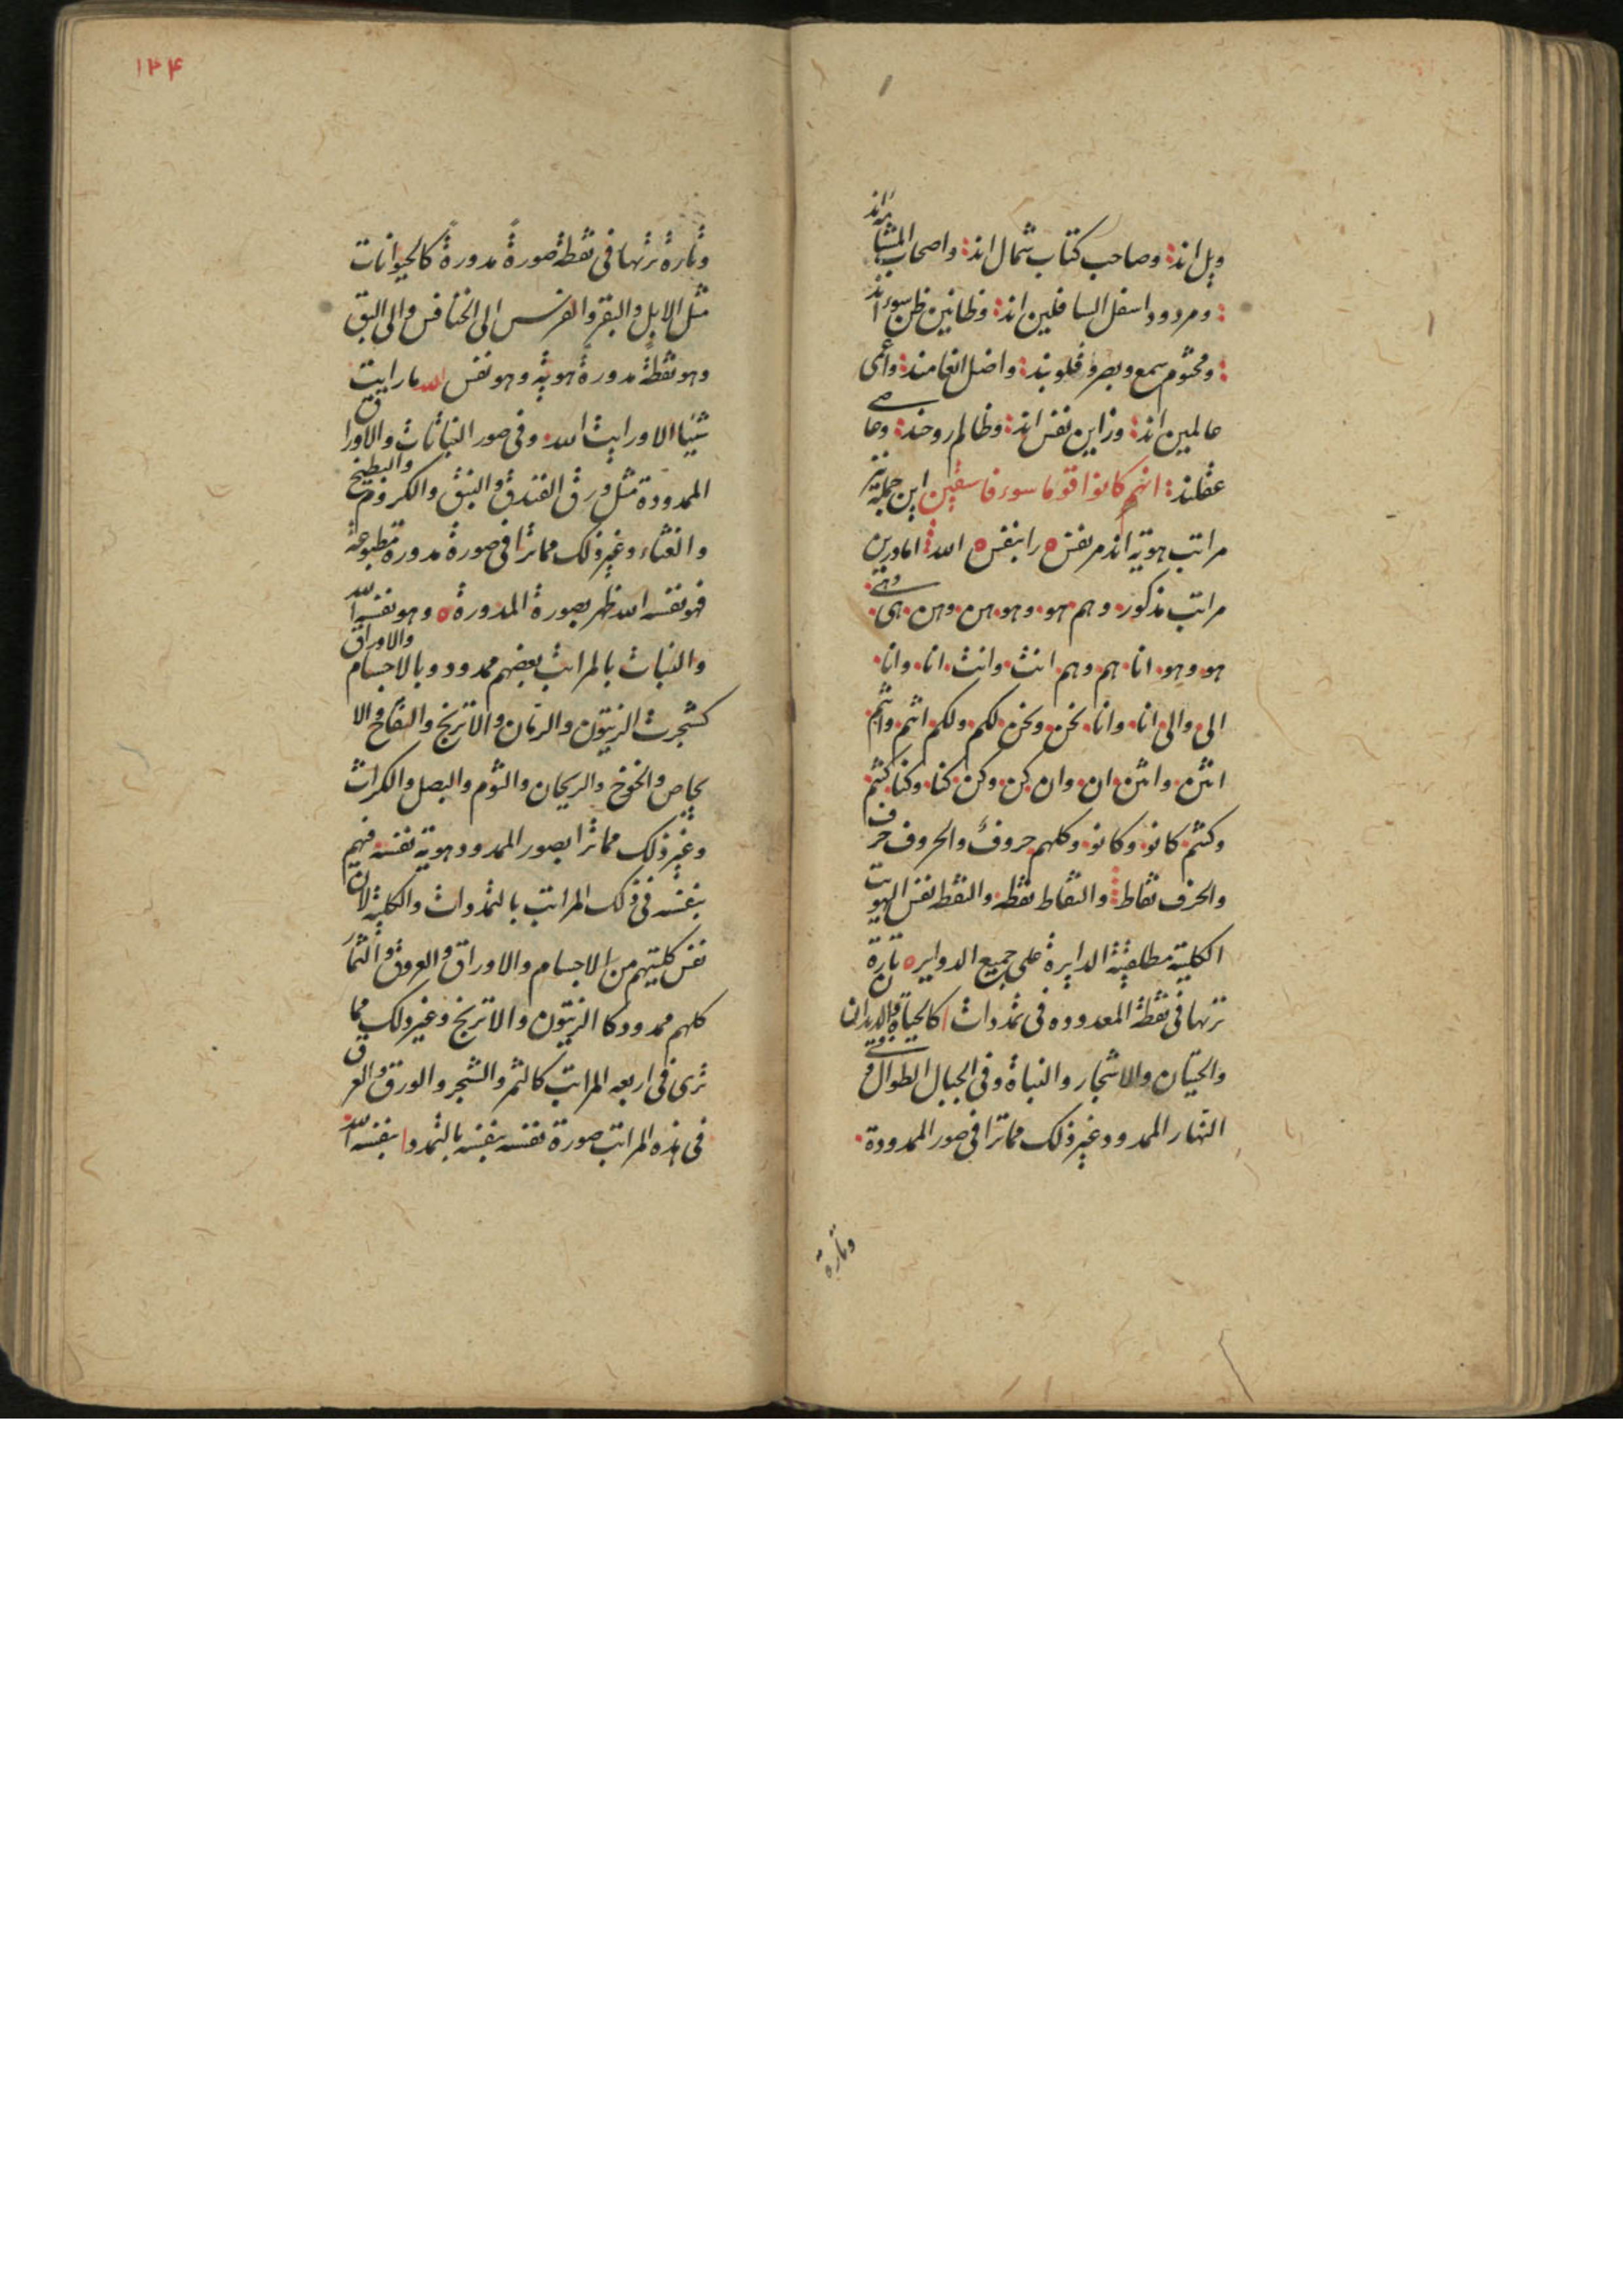 ویل اند: وصاحب کتاب شمال اند: واصحاب المشأمه اند
: ومردود اسفل السافلین اند: وظانین ظن سوء اند
: ومختوم سمع وبصر وقلوبند: واضل انعامند: واعمی
عالمین اند: وزاین نفس اند: وظالم روحند: وعاصی
عقلند: انهم کانوا قوما سوء فاسقین این جمله نیز
مراتب هویة اند مر نفس ه را بنفس ه الله: امادرین
مراتب مذکور. وهم هو. وهو. هن. وهن. هی. وهی.
هو. وهو. انا. هم. وهم. انت. وانت. انا. وانا.
الی. والی انا. وانا. نحن. ونحن. لکم. ولکم. انتم. وانتم.
انتن. وانتن. ان. وان. کن. وکن. کنا. وکنا. کنتم.
وکنتم. کانو. وکانو. وکلهم حروف والحروف حرف
والحرف نقاط: والنقاط نقطه. والنقطه نفس الهویت
الکلیة مطلقیة الدایرة علی جمیع الدوایر ه تارة
ترنها فی نقطة المعدوده فی تمددات کالحیاة والدیدان
والحیتان والاشجار والنباة وفی الجبال الطوال وفی
النهار الممدود وغیر ذلک مماترا فی صور الممدودة.
وتارة
۱۴۴
وتارة ترنها فی نقطة صورة مدورة کالحیوانات
مثل الابل والبقر والفرس الی الخنافس والی البق
وهو نقطة مدورة هویة وهو نفس الله ما رایت
شیئا الا ورایت الله. وفی صور النباتات والاوراق
الممدودة مثل ورق الفندق والنبق والکروم والبطیخ
والقثاء وغیر ذلک مماترا فی صورة مدورة مطبوعة
فهو نفسه الله ظهر بصورة المدورة ه وهو نفسه الله
والنبات بالمراتب بعضهم ممدود وبالاجسام والاوراق
کشجرت الزیتون والرمان والاترنج والتفاح والا
نجاص والخوخ والریحان والثوم والبصل والکراث
وغیر ذلک مماترا بصور الممدود هویة نفسه فهم
بنفسه فی ذلک المراتب بالتمددات والکلیة لان
نفس کلیتهم من الاجسام والاوراق والعروق والثمار
کلهم ممدود کا الزیتون والاترنج وغیر ذلک مما
تری فی اربعه المراتب کالثمر والشجر والورق والعرق
فی هذه المراتب صورة نفسه بنفسه بالتمدد بنفسه الله.